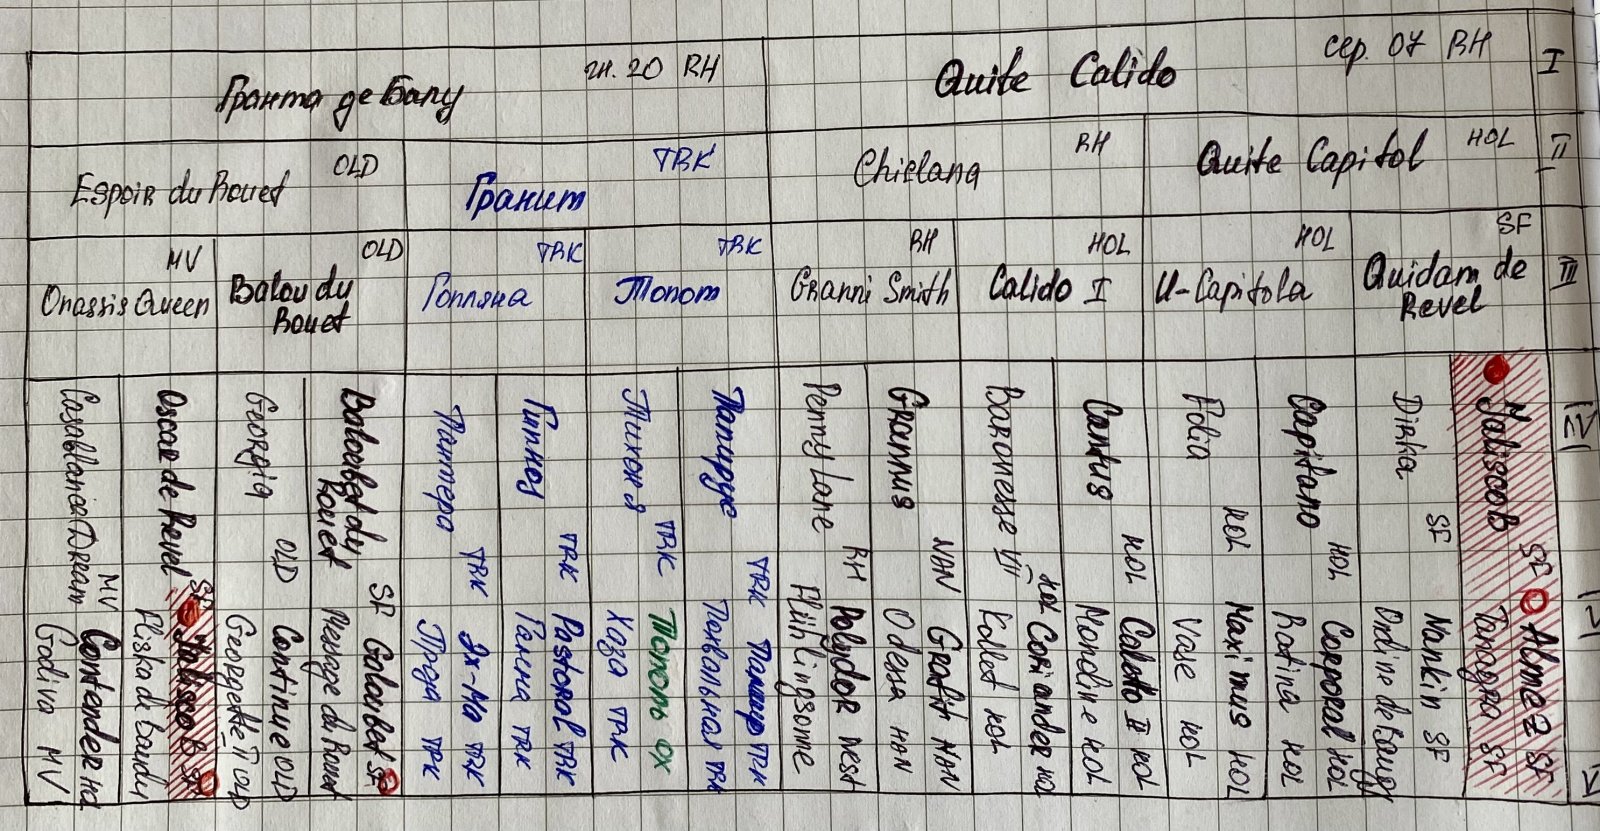 гн. 20 RH
Гранта де Балу
сер. 07 RH
Quite Calido
I
OLD
Espoir du Rouet
TRK
Гранит
RH
Chiclana
HOL
Quite Capitol
II
MV
Onassis Queen
OLD
Balou du
Rouet
TRK
Гопляна
TRK
Топот
RH
Granni Smith
HOL
Calido I
HOL
U-Capitola
SF
Quidam de
Revel
III
Casablanca Dream MV
Oscar de Revel SF
Georgia OLD
Baloubet du
Rouet SF
Пантера TRK
Гипноз TRK
Тихоня TRK
Папирус TRK
Penny Lane RH
Grannus HAN
Baronesse VII HOL
Cantus HOL
Folia HOL
Capitano HOL
Dirka SF
Jalisco B SF
IV
Godiva MV
Contender Hol
Fliska de Baudy
Jalisco B SF
Georgette II OLD
Continue OLD
Mesange du Rouet
Galoubet SF
Прода TRK
Эх-Ма TRK
Галена TRK
Pastoral TRK
Хоза TRK
Тополь ОХ
Похвальная TRK
Памир TRK
Frühlingsonne
Polydor West
Odessa HAN
Grafit HAN
Kollet HOL
Coriander HOL
Mondine HOL
Calato II HOL
Vase HOL
Maximus HOL
Rotina HOL
Corporal HOL
Ondine de Baugy
Nankin SF
Tanagra SF
Almez SF
V